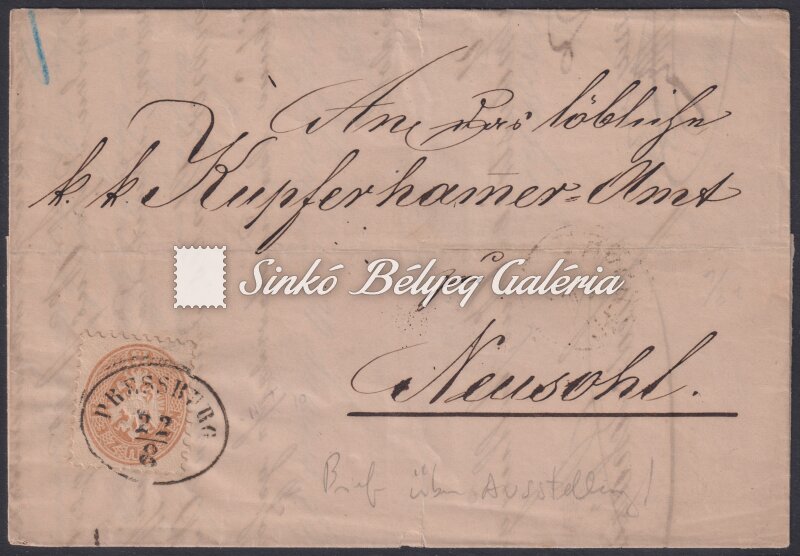 An das löbliche
k. k. Kupferham̄er=Amt
zu
Sinkó Bélyeg Galéria
Neusohl.
PRESSBURG
22
8
Brief über Ausstellung!